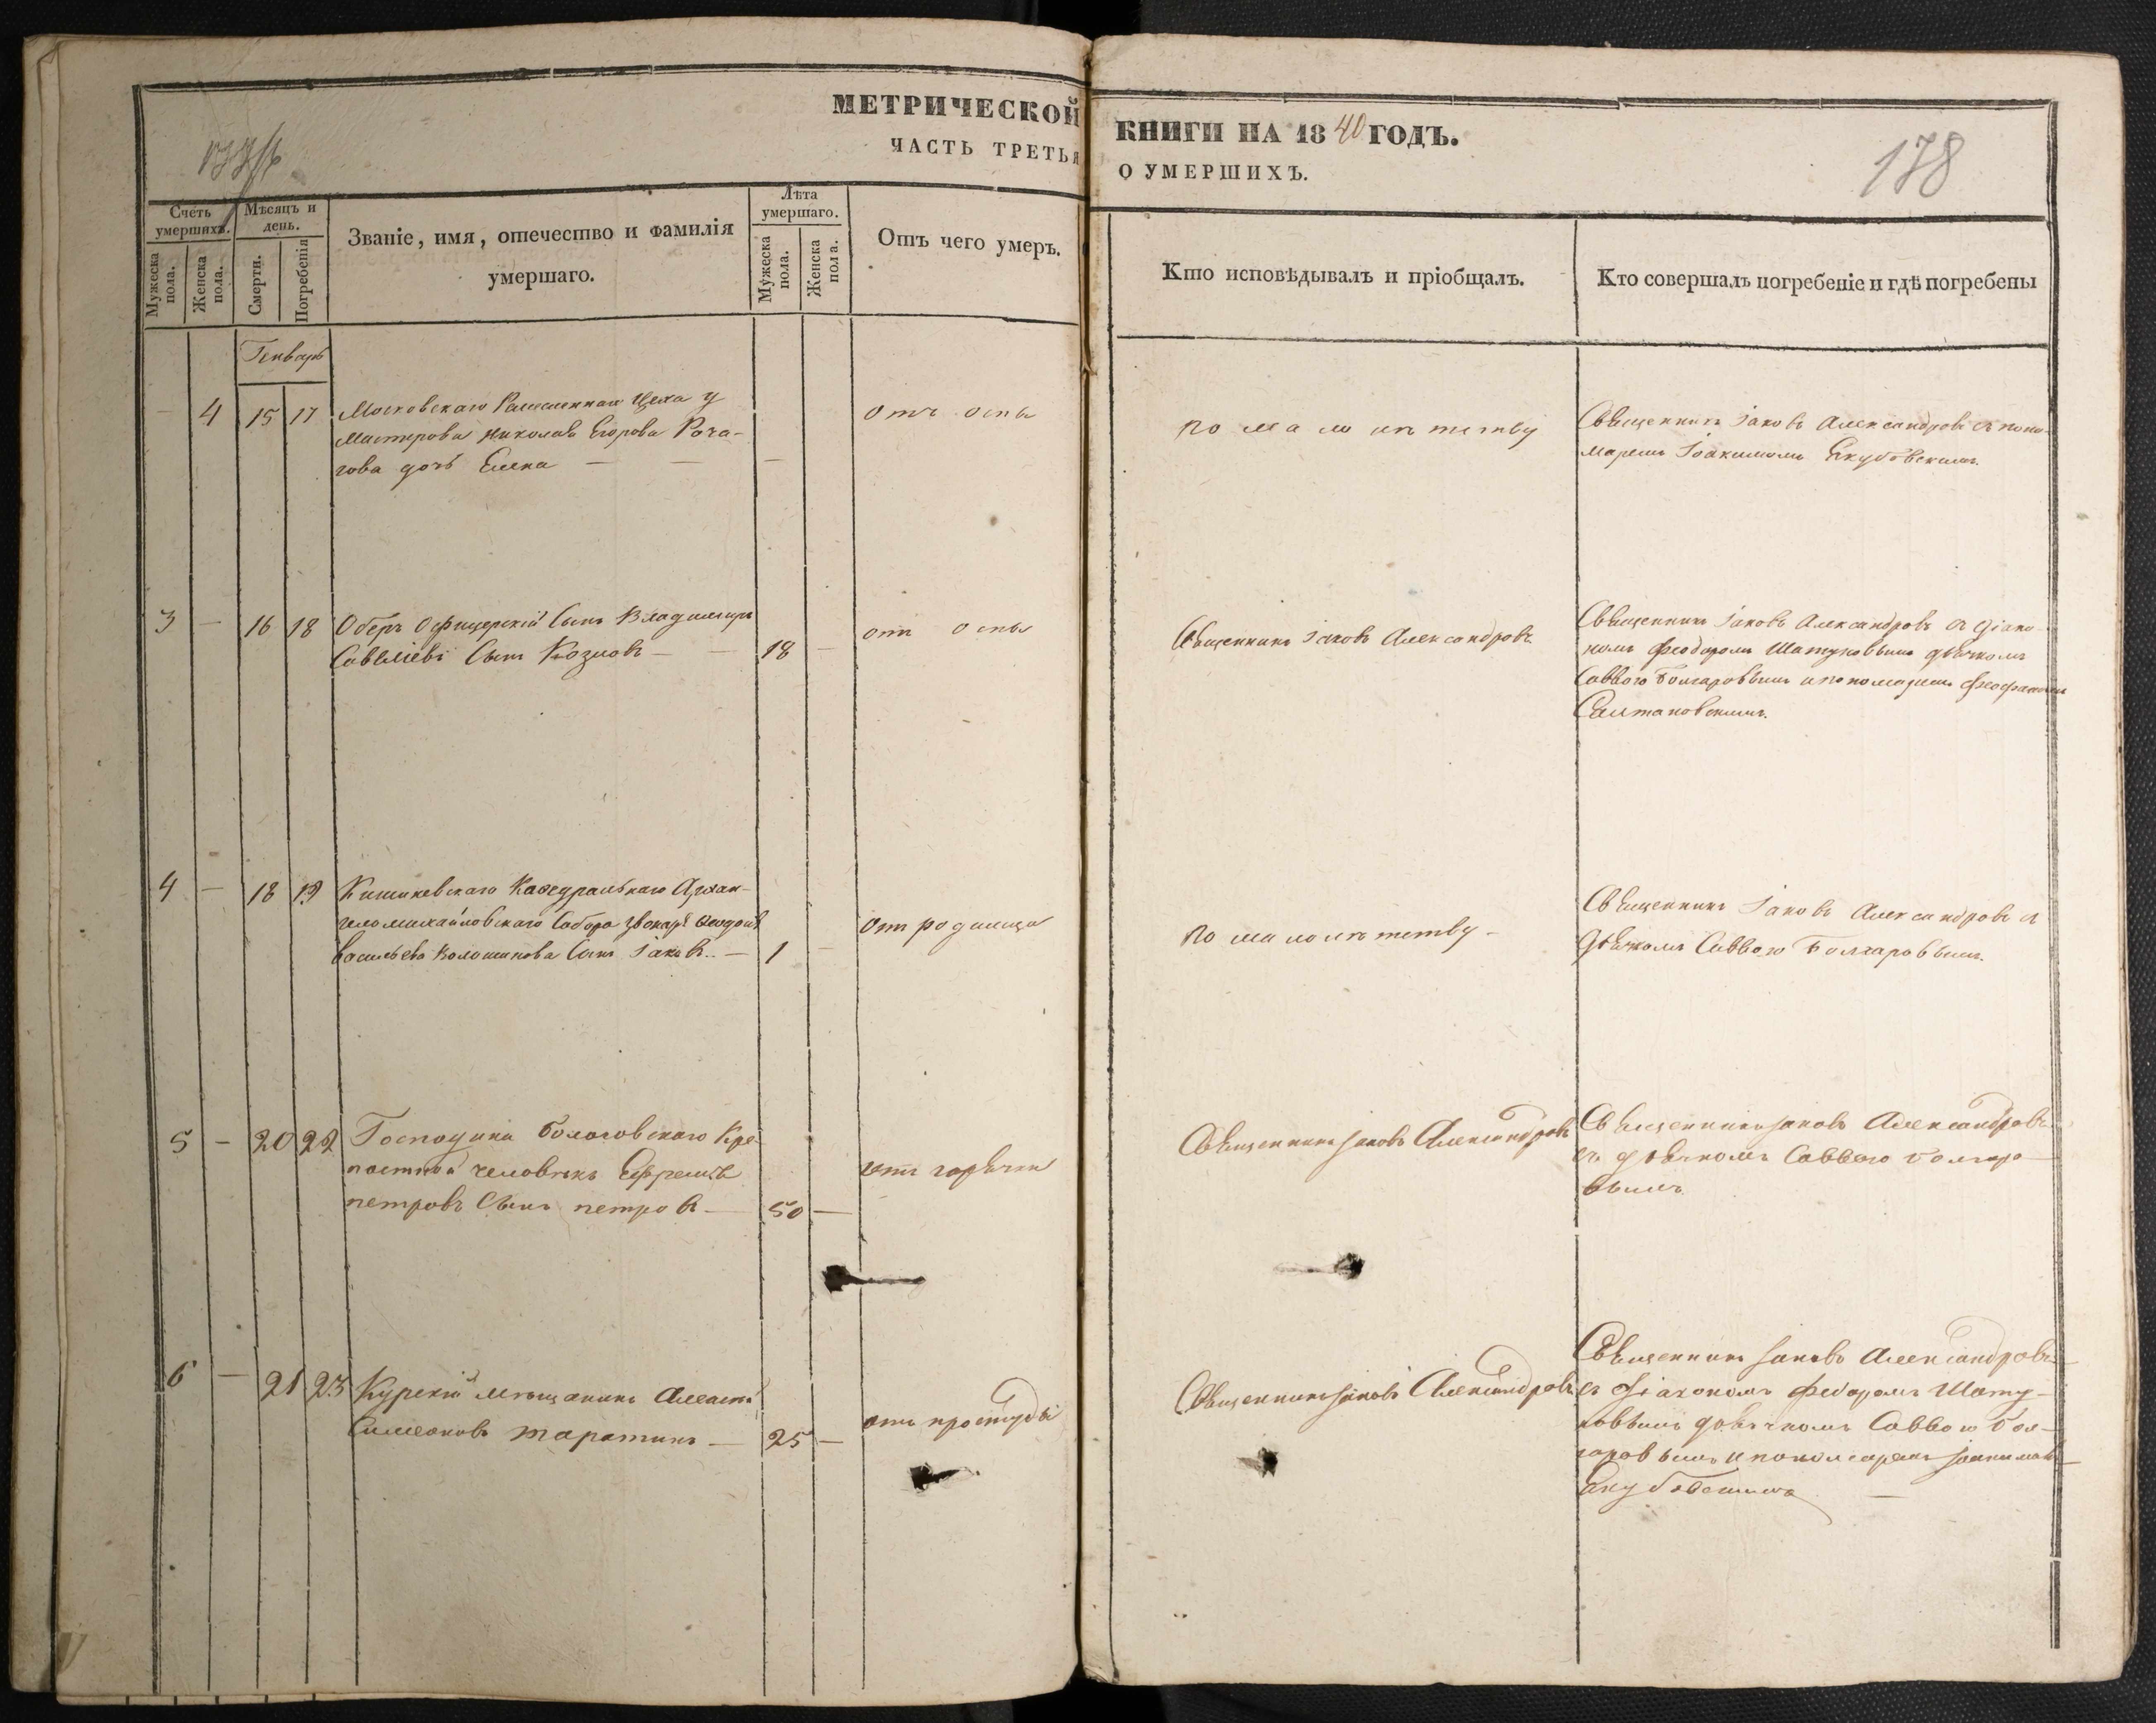 МЕТРИЧЕСКОЙ КНИГИ НА 1840 ГОДЪ.
ЧАСТЬ ТРЕТЬЯ О УМЕРШИХЪ.
178
Счетъ умершихъ.
Мужеска пола.
Женска пола.
Мѣсяцъ и день.
Смерти.
Погребенія
Званіе, имя, отечество и фамилія
умершаго.
Лѣта умершаго.
Мужеска пола.
Женска пола.
Отъ чего умеръ.
Кто исповѣдывалъ и пріобщалъ.
Кто совершалъ погребеніе и гдѣ погребены
Генварь
— 4 15 17
Московскаго цеха
Мастерова Николая Егорова Рога-
дочь Елена — — —
отъ оспы
по малолѣтству
Священникъ Іаковъ Александровъ съ поно-
маремъ Іоакимомъ Екубовскимъ.
3 — 16 18
Оберъ Офицерскій Сынъ Владимиръ
Савеліевъ Сынъ Козловъ — — 18 —
отъ оспы
Священникъ Іаковъ Александровъ
Священникъ Іаковъ Александровъ съ діако-
номъ Феодоромъ Шатуновымъ дьячкомъ
Саввою Болгаровымъ и пономаремъ
Салтановскимъ.
4 — 18 19
Кишиневскаго Каѳедральнаго Архан-
геломихайловскаго Собора звонаря
Васильева Волошинова Сынъ Іаковъ. — 1 —
отъ родимца
по малолѣтству —
Священникъ Іаковъ Александровъ съ
дьячкомъ Саввою Болгаровымъ.
5 — 20 22
Господина Кре-
постной человѣкъ Ефремъ
петровъ Сынъ петровъ — 50 —
отъ горячки
Священникъ Іаковъ Александровъ
Священникъ Іаковъ Александровъ
съ дьячкомъ Саввою Болгаро-
вымъ
6 — 21 23
Курскій мѣщанинъ
Симеоновъ Таратинъ — 25 —
отъ простуды
Священникъ Іаковъ Александровъ
Священникъ Іаковъ Александровъ
съ діакономъ Федоромъ Шату-
новымъ дьячкомъ Саввою Бол-
гаровымъ и пономаремъ Іоакимомъ
Екубовскимъ